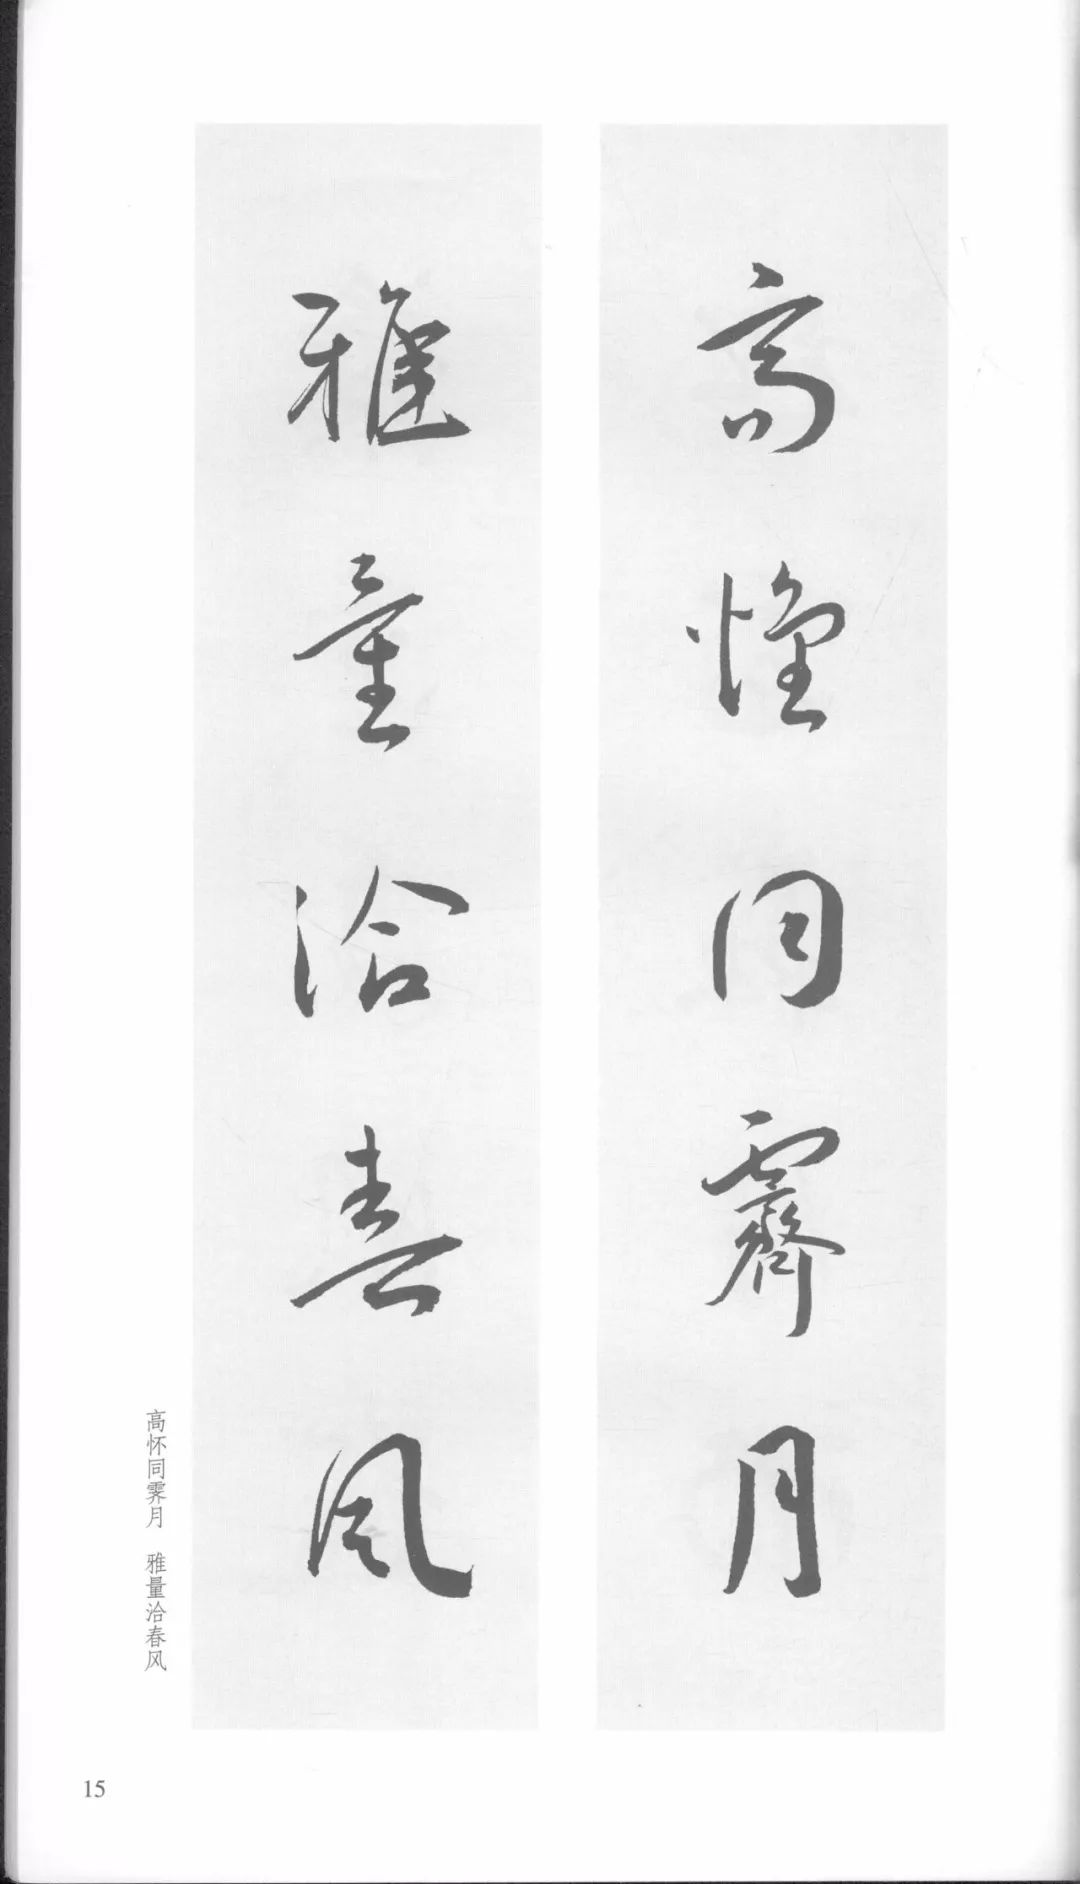 高懷同霽月
雅量洽春風
高怀同霁月 雅量洽春风
15